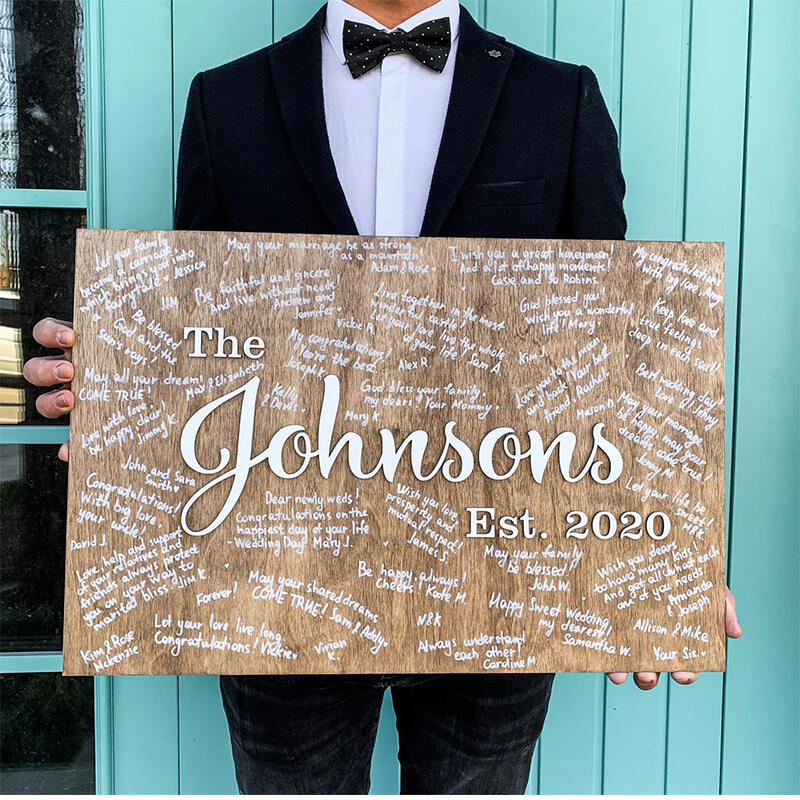 Let you family
become a carriage
which brings you into
a fairytale! Jessica
May your marriage be as strong
as a mountain!
Adam & Rose
I wish you a great honeymoon!
And a lot of happy moments!
Casie and so Robins
My congratulations
with big love,
Be faithful and sincere
And live with out needs!
Andrew and
Jennifer
Live together in the most
wonderful castle
Let your love
of your life! Sam A
Vickie R.
God blessed you
wish you a wonderful
life! Mary
Keep love and
true feelings
deep in each soul!
Be blessed
God and the
sun's rays!
The
My congratulations!
You're the best
Joseph K
Alex R
Kim J.
May all your dreams
COME TRUE!
May & Elizabeth
Kelly
& Dave
God bless your family,
my dears! Your Mommy
Love you to the moon
and back! Your best
friend Rachel
Best wedding day
Live with love,
be happy dear
Jimmy K
Mary K
Mason D.
May your marriage
be happy may your
dreams come true!
Johnsons
John and Sara
Smith
Congratulations!
With big love,
your uncle!
David J.
Dear newly weds!
Congratulations on the
happiest day of your life
-Wedding Day! Mary J.
Wish you love
prosperity and
mutual respect!
James S
Let your life be
sweet
Est. 2020
Love, help and support
of your relatives and
friends always protect
you on your way to
married bliss! Jim K.
May your family
be blessed!
John W.
Wish you dears
to have many kids!
And get all what each
and of you needs!
Amanda
& Joseph
Be happy always!
Cheers! Kate M.
Forever!
May your shared dreams
COME TRUE! Sam & Addy
Happy Sweet Wedding,
my dearest!
Samantha W.
N & K
Let your love live long
Congratulations! Vickie
Vivian
K.
Always understand
each other!
Caroline M
Allison & Mike
Kim & Rose
McKenzie
Your Sis.